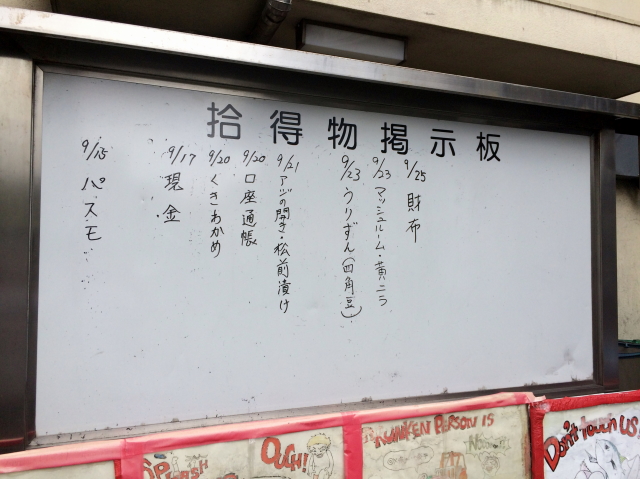 拾得物掲示板
9/25 財布
9/23 マッシュルーム・黄ニラ
9/23 うりずん(四角豆)
9/21 アジの開き・松前漬け
9/20 口座通帳
9/20 くきわかめ
9/17 現金
9/15 パスモ
OUCH!
DRUNKEN PERSON IS
Don't touch US